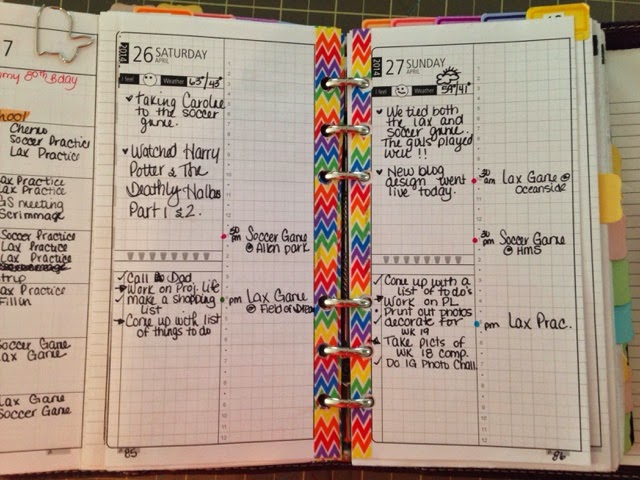 7
my 80th Bday
School
Chene
Soccer Practice
Lax Practice
Lax Practice
Lax Practice
GS meeting
Scrimmage
Soccer Practice
Lax Practice
Lax Practice
trip
Lax Practice
Fill in
Soccer Game
Lax Game
Lax Game
Soccer Game
2014
26 SATURDAY
APRIL
I feel
Weather 63°/43°
Taking Caroline
to the soccer
game.
Watched Harry
Potter & The
Deathly Hallows
Part 1 & 2.
30
pm
Soccer Game
@ Allen Park
Call Dad
Work on Proj. Life
make a shopping
list
Come up with list
of things to do
pm
Lax Game
@ Field of Dreams
85
2014
27 SUNDAY
APRIL
I feel
Weather 59°/41°
We tied both
the lax and
soccer game.
The girls played
well!!
New blog
design went
live today.
30
am
Lax Game @
Oceanside
30
pm
Soccer Game
@ HMS
Come up with a
list of to do's
Work on PL
Print out photos
decorate for
WK 19
Take picts of
WK 18 comp.
Do IG Photo Chall.
pm
Lax Prac.
86